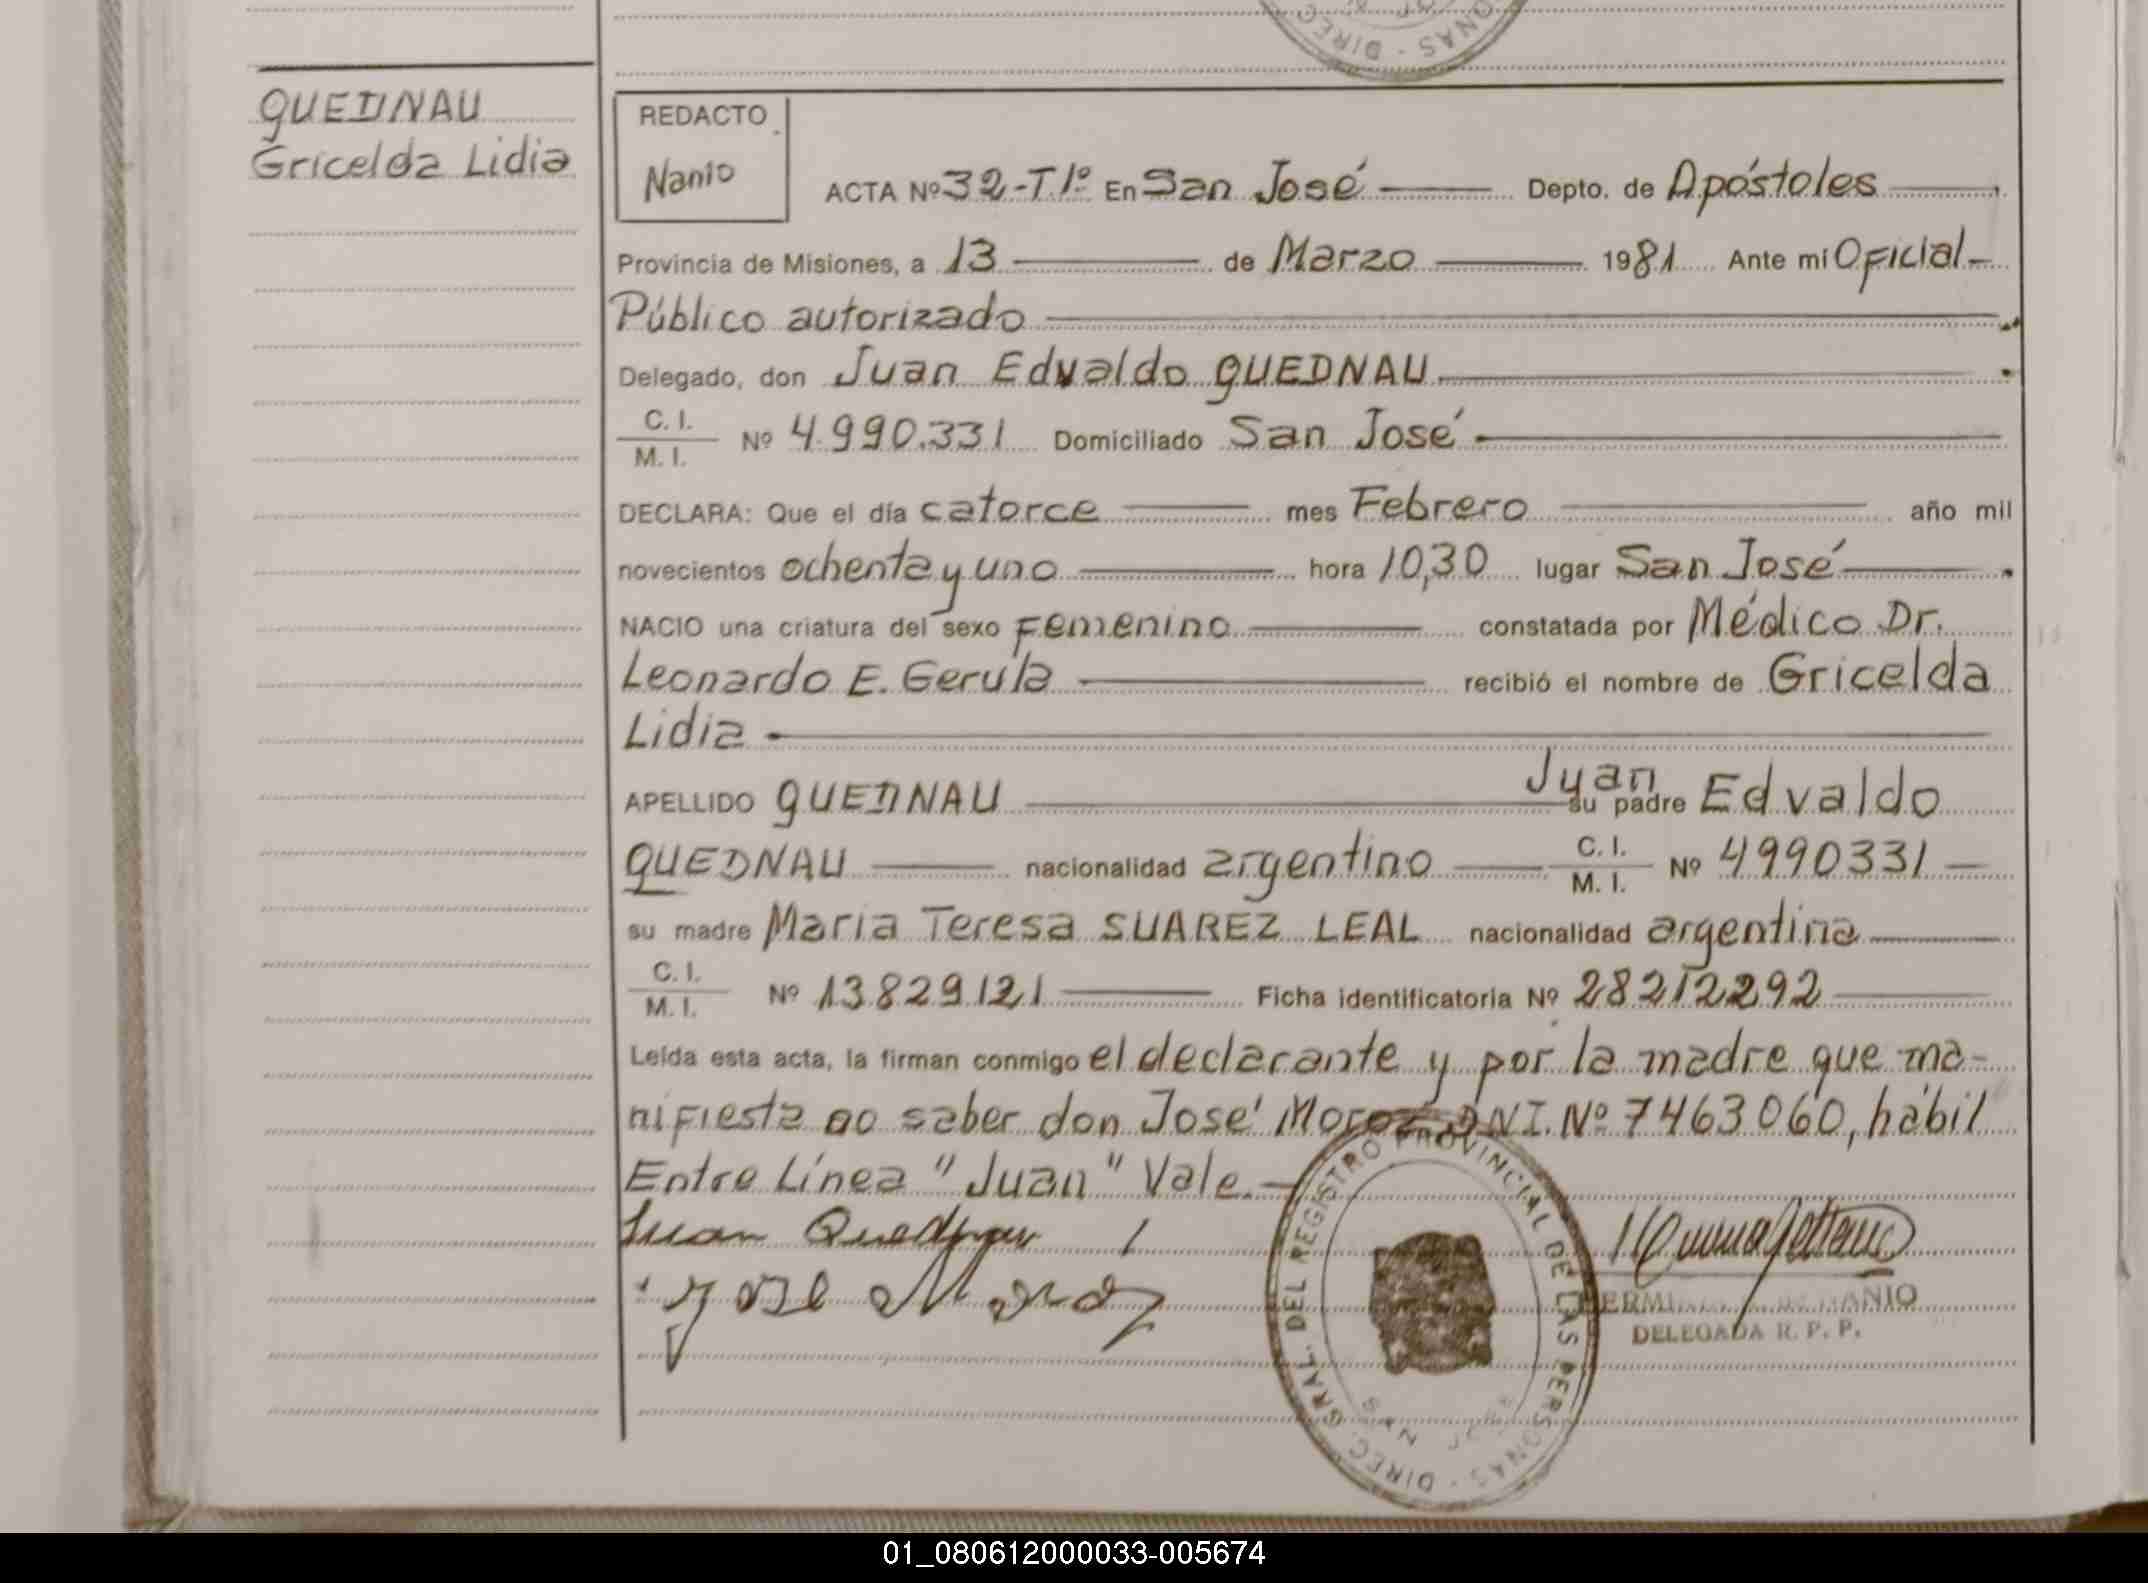 QUEDNAU
Gricelda Lidia
REDACTO
Nanio
ACTA Nº 32-T1º En San José Depto. de Apóstoles
Provincia de Misiones, a 13 de Marzo 1981 Ante mí Oficial
Público autorizado
Delegado, don Juan Edvaldo QUEDNAU
C. I.
M. I.
Nº 4.990.331 Domiciliado San José
DECLARA: Que el día catorce mes Febrero año mil
novecientos ochenta y uno hora 10,30 lugar San José
NACIO una criatura del sexo Femenino constatada por Médico Dr.
Leonardo E. Gerula recibió el nombre de Gricelda
Lidia
Juan
APELLIDO QUEDNAU su padre Edvaldo
QUEDNAU nacionalidad argentino C. I. M. I. Nº 4990331
su madre Maria Teresa SUAREZ LEAL nacionalidad argentina
C. I.
M. I.
Nº 13829121 Ficha identificatoria Nº 28212292
Leída esta acta, la firman conmigo el declarante y por la madre que ma-
nifiesta no saber don José Moroz DNI. Nº 7463060, hábil
Entre Línea "Juan" Vale.-
Juan Quednau
José Moroz
DIREC. GRAL. DEL REGISTRO PROVINCIAL DE LAS PERSONAS
SAN JOSE
NANIO
DELEGADA R. P. P.
01_080612000033-005674